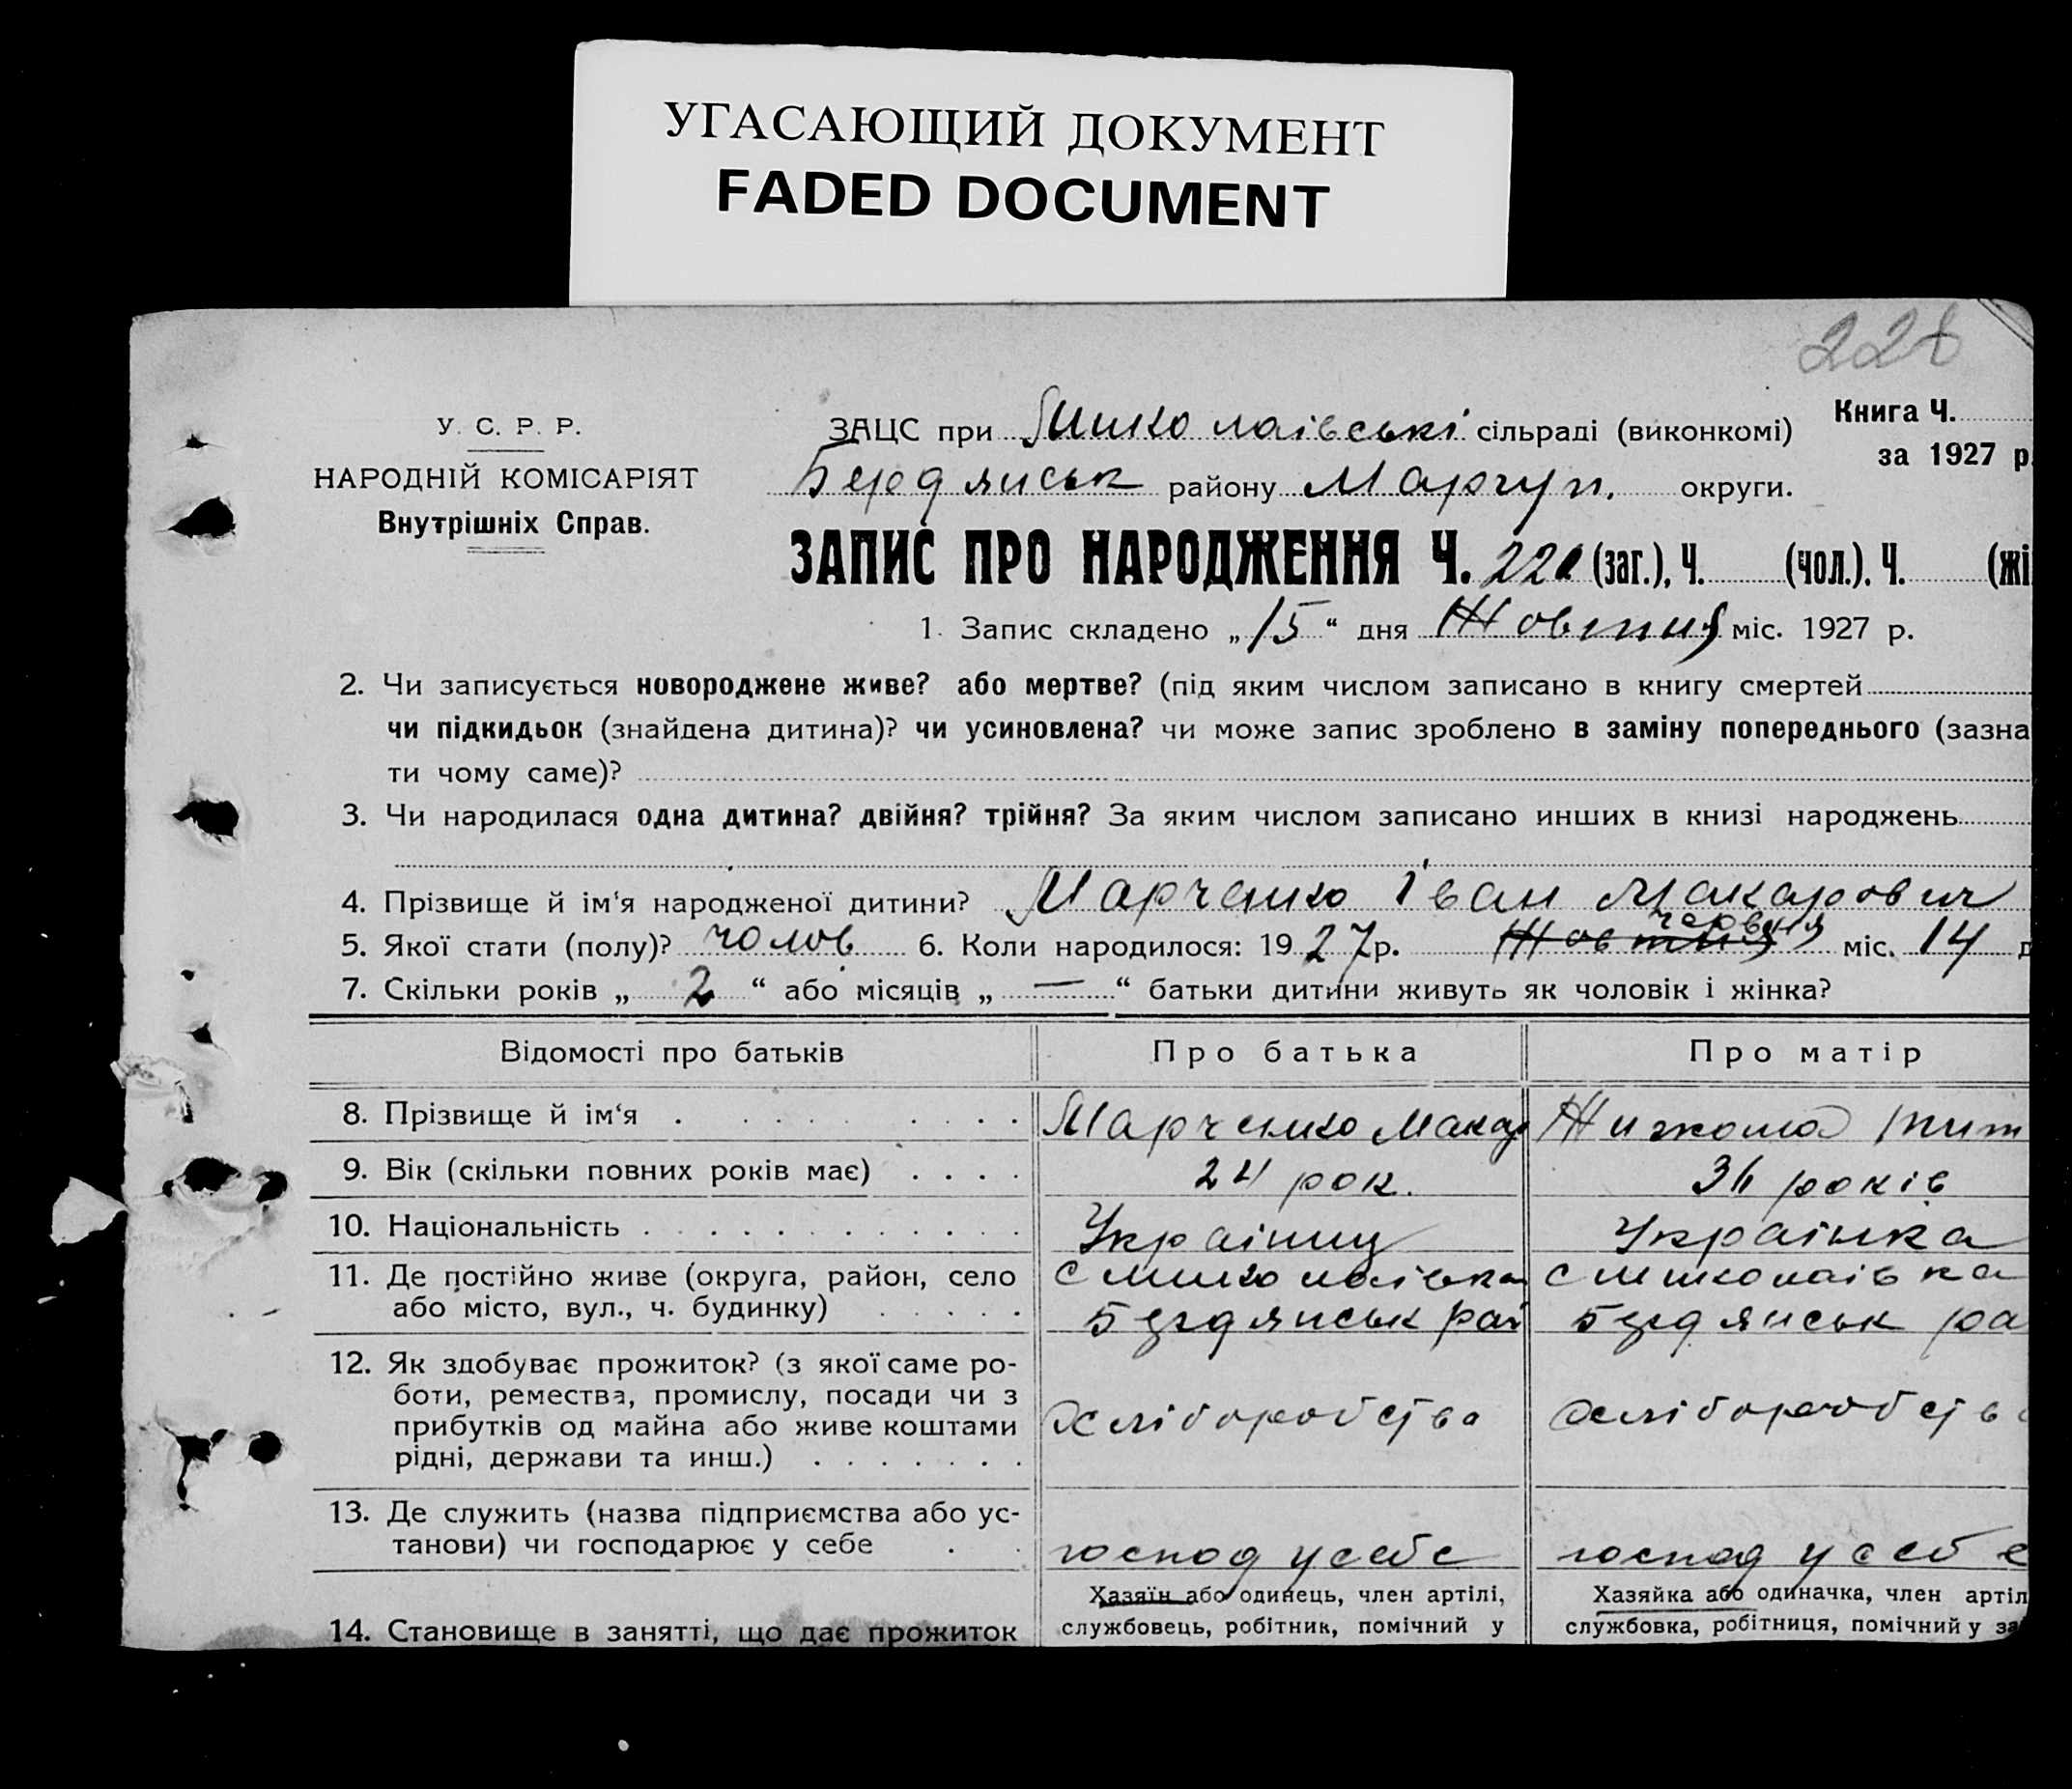 УГАСАЮЩИЙ ДОКУМЕНТ
FADED DOCUMENT
228
У. С. Р. Р.
НАРОДНІЙ КОМІСАРІЯТ
Внутрішніх Справ.
Книга Ч.
за 1927 р.
ЗАЦС при Миколаівські сільраді (виконкомі)
Бердянськ района Маріуп. округи.
ЗАПИС ПРО НАРОДЖЕННЯ Ч. (заг.), Ч. (чол.). Ч. (жі
1. Запис складено „15“ дня Жовтня міс. 1927 р.
2. Чи записується новороджене живе? або мертве? (під яким числом записано в книгу смертей
чи підкидьок (знайдена дитина)? чи усиновлена? чи може запис зроблено в заміну попереднього (зазна
ти чому саме)?
3. Чи народилася одна дитина? двійня? трійня? За яким числом записано инших в книзі народжень
4. Прізвище й ім‘я народженої дитини? Марченко Іван Макарович
5. Якої стати (полу)? чолов 6. Коли народилося: 1927р. Жовтня червня міс. 14 д
7. Скільки років „2“ або місяців „—“ батьки дитини живуть як чоловік і жінка?
Відомості про батьків Про батька Про матір
8. Прізвище й ім‘я Марченко Макар
9. Вік (скільки повних років має) 24 рок. 36 років
10. Національність Украінец Украінка
11. Де постійно живе (округа, район, село с Миколаівка с Миколаівка
або місто, вул., ч. будинку) Бердянськ рай Бердянськ ра
12. Як здобуває прожиток? (з якої саме ро-
боти, ремества, промислу, посади чи з
прибутків од майна або живе коштами хліборобство хліборобств
рідні, держави та инш.)
13. Де служить (назва підприємства або ус-
танови) чи господарює у себе господ у себе господ у себе
14. Становище в занятті, що дає прожиток
Хазяїн або одинець, член артілі,
службовець, робітник, помічний у
Хазяйка або одиначка, член артіл
службовка, робітниця, помічний у за